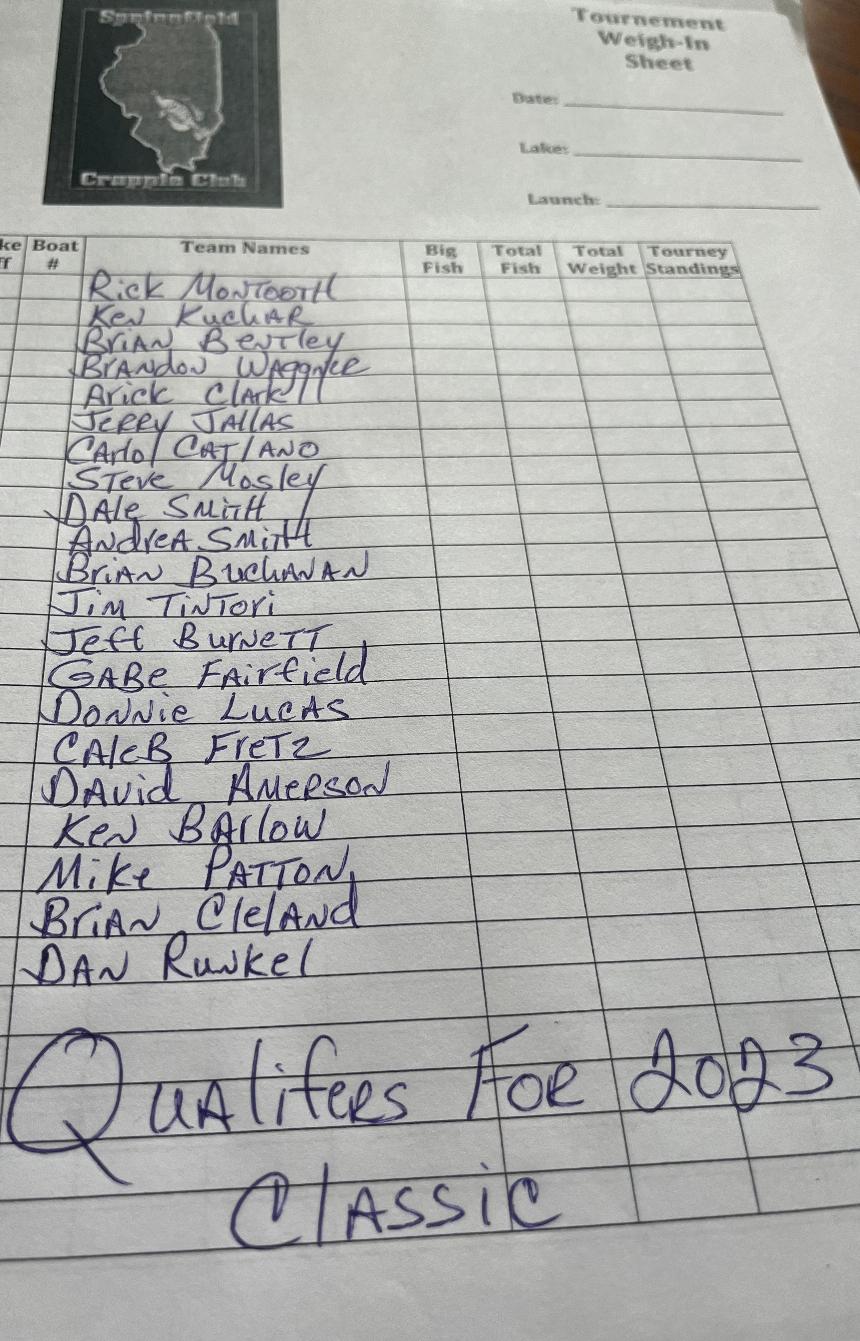 Springfield
Crappie Club
Tournement
Weigh-In
Sheet
Date:
Lake:
Launch:
ke Boat Team Names Big Total Total Tourney
ff # Fish Fish Weight Standings
Rick Montooth
Ken Kuchar
Brian Bentley
Brandon Waggnee
Arick Clark
Jerry Jallas
Carlol Catlano
Steve Mosley
Dale Smith
Andrea Smith
Brian Buchanan
Jim Tintori
Jeff Burnett
Gabe Fairfield
Donnie Lucas
Caleb Fretz
David Amerson
Ken Barlow
Mike Patton
Brian Cleland
Dan Runkel
Qualifers For 2023
Classic